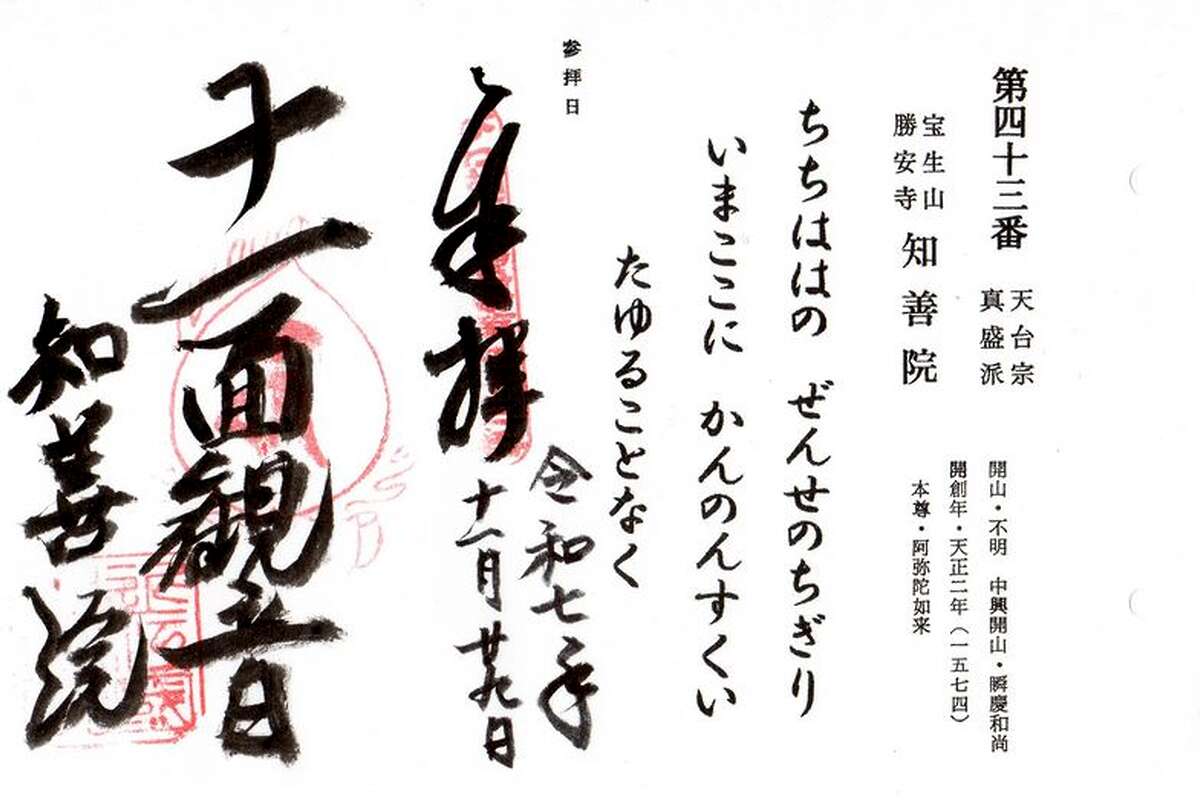 第四十三番
天台宗
真盛派
宝生山
勝安寺
知善院
開山・不明 中興開山・瞬慶和尚
開創年・天正二年(一五七四)
本尊・阿弥陀如来
ちちははの ぜんせのちぎり
いまここに かんのんすくい
たゆることなく
参拝日
奉拝
令和七年
十一月廿九日
十一面観音
知善院